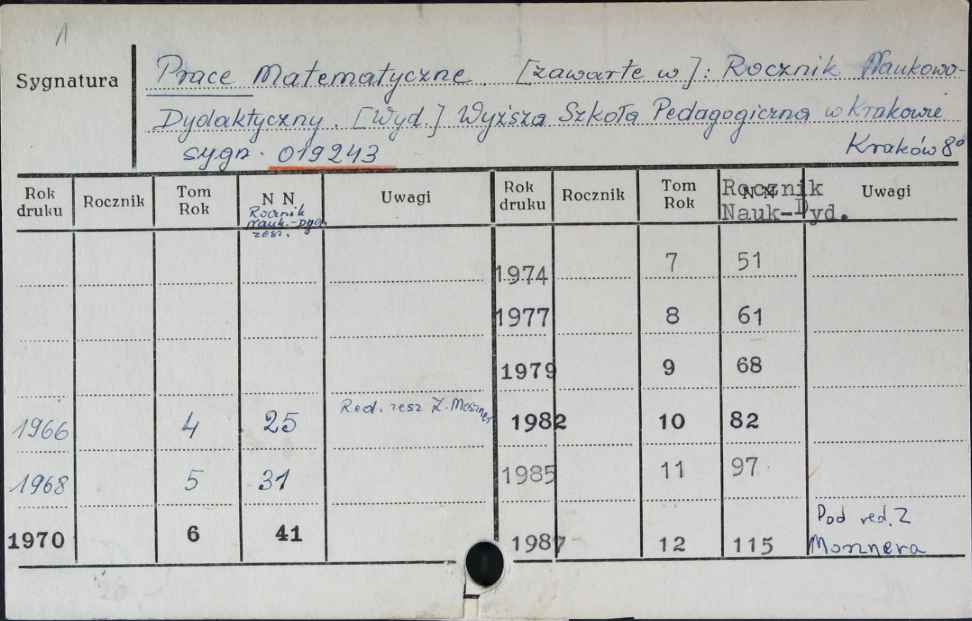 1
Sygnatura
Prace Matematyczne. [zawarte w]: Rocznik Naukowo-
Dydaktyczny. [Wyd.] Wyższa Szkoła Pedagogiczna w Krakowie
sygn. 019243 Kraków 8°
Rok druku Rocznik Tom Rok N N. Uwagi Rok druku Rocznik Tom Rok N N. Uwagi
Rocznik
Nauk.-Dyd.
zesz.
Rocznik
Nauk-Dyd.
1974 7 51
1977 8 61
1979 9 68
1966 4 25 Red. zesz Z. Moszner 1982 10 82
1968 5 31 1985 11 97
1970 6 41 1987 12 115 Pod red. Z
Mosznera